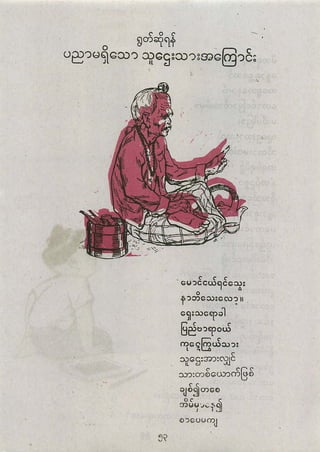 ရွတ်ဆိုရန်
ပညာမရှိသော သူဌေးသားအကြောင်း
မောင်ငယ်ရင်သွေး
နာဘိသေးလော့။
ရှေးသရောခါ
ပြည်ဗာရာဝယ်
ကုဋေကြွယ်သား
သူဌေးအားလျှင်
သားတစ်ယောက်ဖြစ်
ချစ်၍ဟစေ
အိမ်မှာနေ၍
စာပေမကျ
၅၃